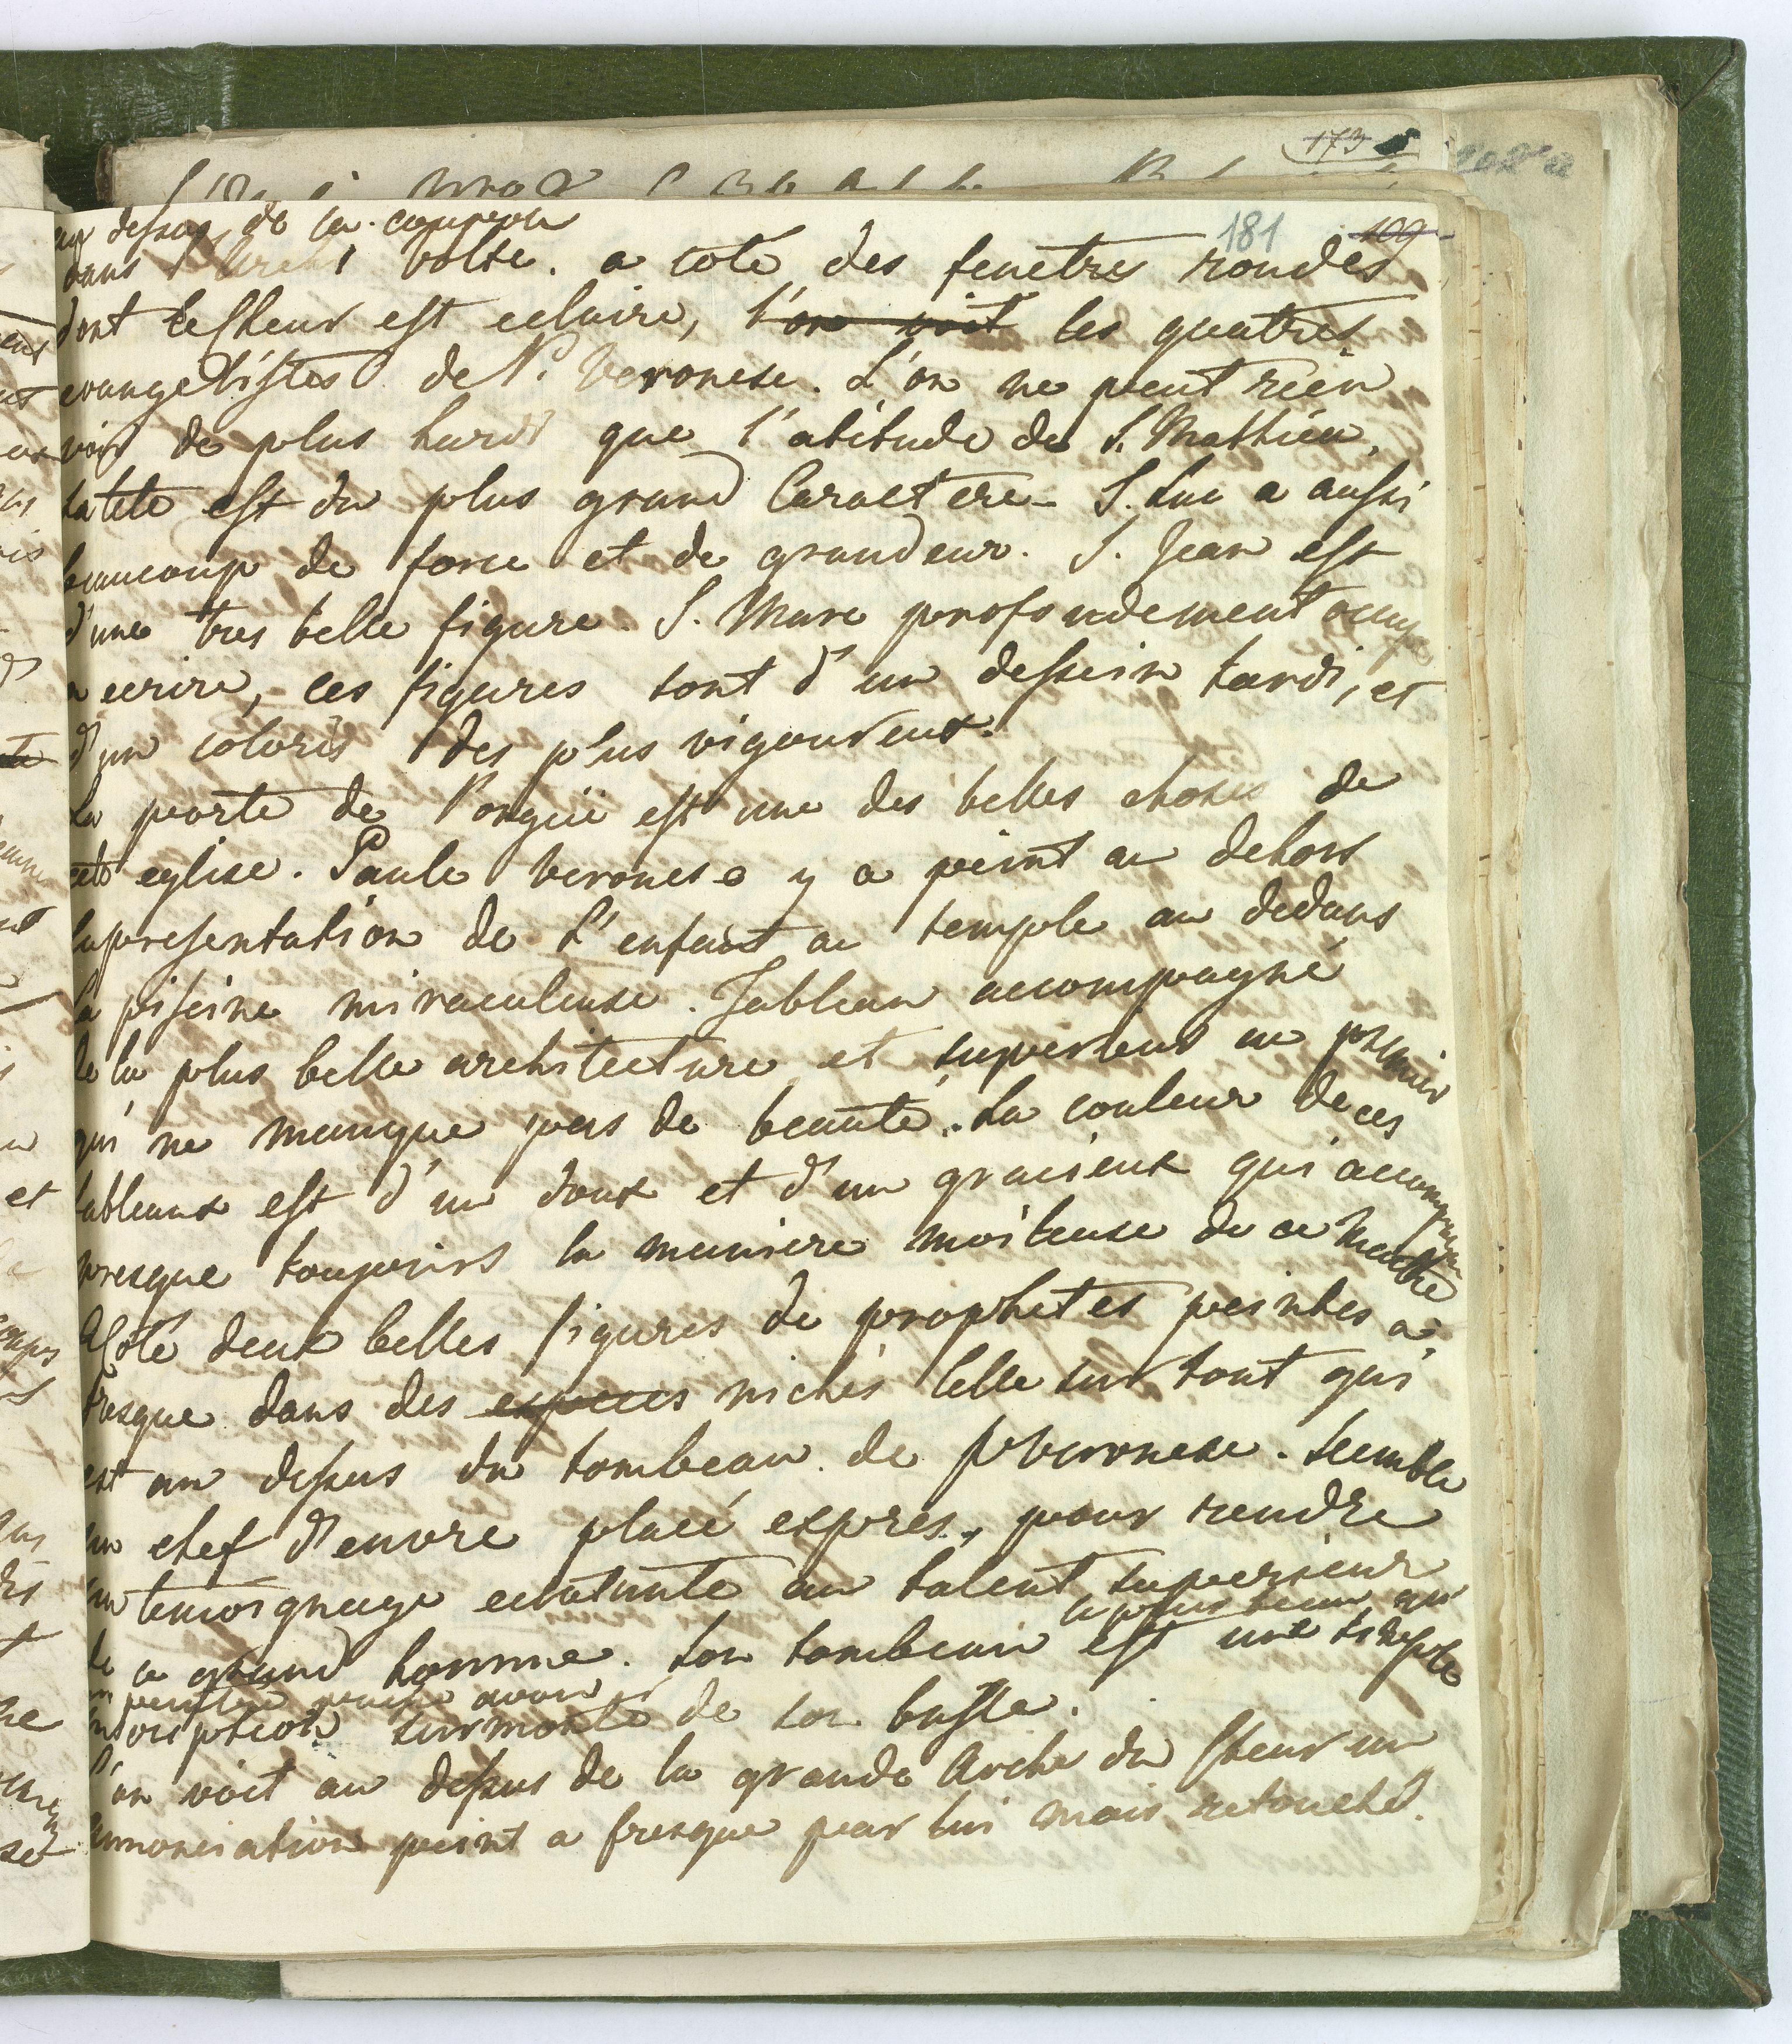 173
181
109
au dessus de la corniche
dans l'archi volte. a coté des fenetres rondes
dont le Cheur est eclaire, l'on voit les quatres
evangelistes de P. Veronese. L'on ne peut rien
voir de plus hardi que l'atitude de S. Mathieu,
la tete est du plus grand Caractere. S. Luc a aussi
beaucoup de force et de grandeur. S. Jean est
d'une tres belle figure. S. Marc profondement occupé
a ecrire, ces figures sont d'un dessein hardi, et
d'un coloris des plus vigoureux.
La porte de l'orgüe est une des belles choses de
cette eglise. Paule Veronese y a peint au dehors
la presentation de L'enfant au temple au dedans
la piscine miraculeuse. Tableau accompagné
de la plus belle architecture et superieur au premier
qui ne manque pas de beauté. La couleur de ces
tableaux est d'un doux et d'un gracieux qui accompagne
presque toujours la maniere moileuse de ce Maitre
A coté deux belles figures de prophetes peintes a
fresque dans des especes niches celle sur tout qui
est au dessus du tombeau de P Veronese. semble
un chef d'euvre placé expres, pour rendre
un temoignage eclatante au talent superieur
de ce grand homme. son tombeau est une simple
le plus beau qu'
un peintre puisse avoir
inscription surmonté de son buste.
L'on voit au dessus de la grande Arche du Cheur un
annonciation peint a fresque par lui mais retouché.